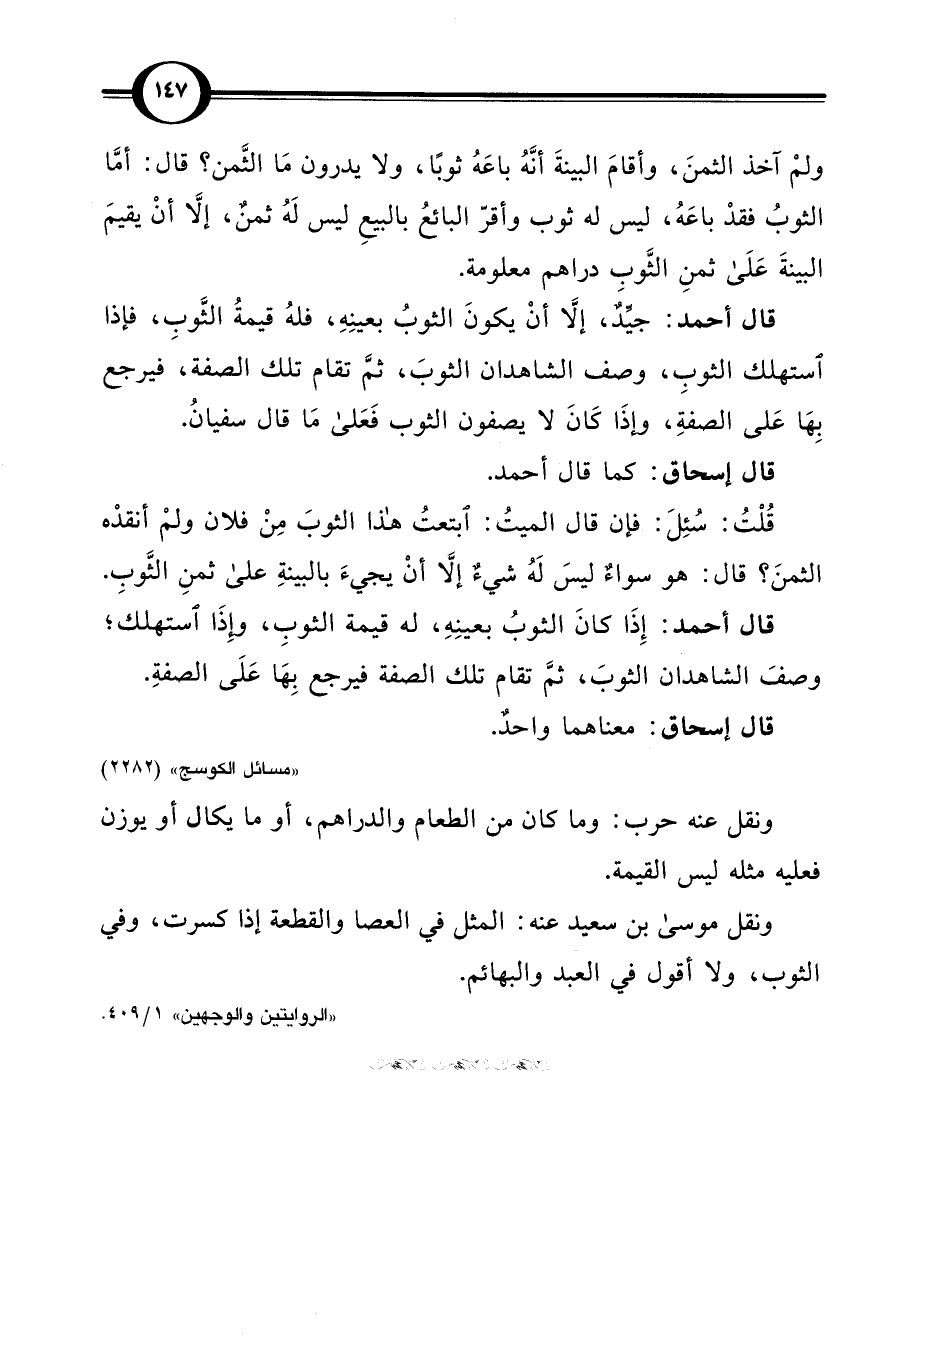 ١٤٧
ولمْ آخذ الثمنَ، وأقامَ البينةَ أنَّهُ باعَهُ ثوبًا، ولا يدرون مَا الثَّمن؟ قال: أمَّا
الثوبُ فقدْ باعَهُ، ليس له ثوب وأقرّ البائعُ بالبيعِ ليس لَهُ ثمنٌ، إلَّا أنْ يقيمَ
البينةَ عَلَىٰ ثمنِ الثَّوبِ دراهم معلومة.
قال أحمد: جيِّدٌ، إلَّا أنْ يكونَ الثوبُ بعينِهِ، فلهُ قيمةُ الثَّوبِ، فإذا
ٱستهلك الثوبِ، وصف الشاهدان الثوبَ، ثمَّ تقام تلك الصفة، فيرجع
بِهَا عَلى الصفةِ، وإذَا كَانَ لا يصفون الثوب فَعَلىٰ مَا قال سفيانُ.
قال إسحاق: كما قال أحمد.
قُلْتُ: سُئِلَ: فإن قال الميتُ: ٱبتعتُ هٰذا الثوبَ مِنْ فلان ولمْ أنقدْه
الثمنَ؟ قال: هو سواءٌ ليسَ لَهُ شيءٌ إلَّا أنْ يجيءَ بالبينةِ علىٰ ثمنِ الثَّوبِ.
قال أحمد: إذَا كانَ الثوبُ بعينِهِ، له قيمة الثوبِ، وإذَا ٱستهلك؛
وصفَ الشاهدان الثوبَ، ثمَّ تقام تلك الصفة فيرجع بِهَا عَلَى الصفةِ.
قال إسحاق: معناهما واحدٌ.
«مسائل الكوسج» (٢٢٨٢)
ونقل عنه حرب: وما كان من الطعام والدراهم، أو ما يكال أو يوزن
فعليه مثله ليس القيمة.
ونقل موسىٰ بن سعيد عنه: المثل في العصا والقطعة إذا كسرت، وفي
الثوب، ولا أقول في العبد والبهائم.
«الروايتين والوجهين» ٤٠٩/١.